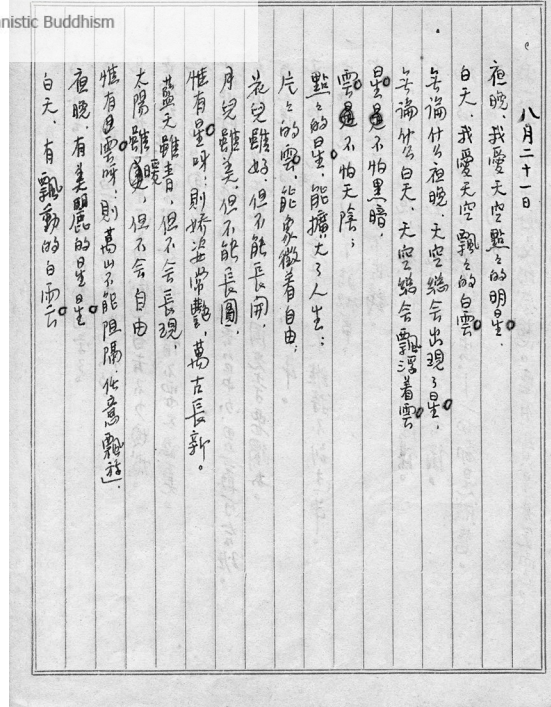 nistic Buddhism
八月二十一日
夜晚，我愛天空點々的明星，
白天，我愛天空飄々的白雲。
無論什么夜晚，天空總会出現了星，
無論什么白天，天空總会飄浮着雲。
星不怕黑暗，
雲不怕天陰；
點々的星，能擴大了人生；
片々的雲，能象徵着自由；
花兒雖好，但不能長開，
月兒雖美，但不能長圓，
惟有星呀！則嬌姿常艷，萬古長新。
藍天雖青，但不会長現；
太陽雖暖，但不会自由
惟有雲呀！則萬山不能阻隔，任意飄遊」．
夜晚，有美麗的星星。
白天，有飄動的白雲。